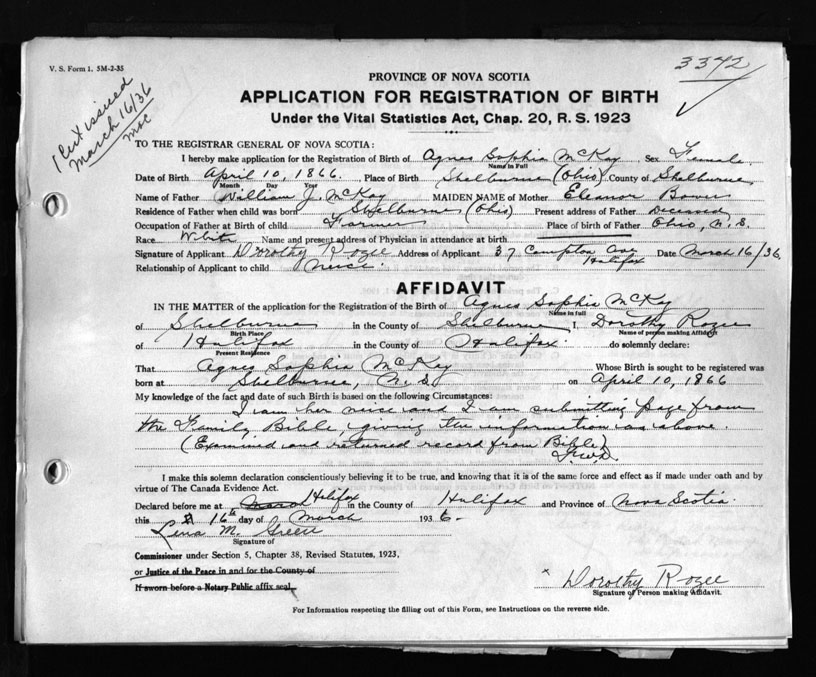 V. S. Form 1. 5M-2-35
3342
1 Cert issued
March 16/36
PROVINCE OF NOVA SCOTIA
APPLICATION FOR REGISTRATION OF BIRTH
Under the Vital Statistics Act, Chap. 20, R. S. 1923
TO THE REGISTRAR GENERAL OF NOVA SCOTIA:
I hereby make application for the Registration of Birth of Agnes Sophia McKay Sex Female
Name in Full
Date of Birth April 10, 1866. Place of Birth Shelburne (Ohio) County of Shelburne
Month Day Year
Name of Father William J. McKay MAIDEN NAME of Mother Eleanor Bower
Residence of Father when child was born Shelburne (Ohio) Present address of Father Deceased
Occupation of Father at Birth of child Farmer Place of birth of Father Ohio, N.S.
Race White Name and present address of Physician in attendance at birth
Signature of Applicant Dorothy Rozee Address of Applicant 37 Compton Ave Halifax Date March 16/36
Relationship of Applicant to child Neice.
AFFIDAVIT
IN THE MATTER of the application for the Registration of the Birth of Agnes Sophia McKay
Name in full
of Shelburne in the County of Shelburne I, Dorothy Rozee
Birth Place Name of person making Affidavit
of Halifax in the County of Halifax. do solemnly declare:
Present Residence
That Agnes Sophia McKay Whose Birth is sought to be registered was
born at Shelburne, N.S. on April 10, 1866
My knowledge of the fact and date of such Birth is based on the following Circumstances:
I am her neice and I am submitting page from
the Family Bible, giving the information as above.
(Examined and returned record from Bible)
I make this solemn declaration conscientiously believing it to be true, and knowing that it is of the same force and effect as if made under oath and by
virtue of The Canada Evidence Act.
Declared before me at Halifax in the County of Halifax and Province of Nova Scotia.
this 16th day of March 1936.
Lena M. Green
Signature of
Commissioner under Section 5, Chapter 38, Revised Statutes, 1923,
or Justice of the Peace in and for the County of
If sworn before a Notary Public affix seal.
x Dorothy Rozee
Signature of Person making Affidavit.
For Information respecting the filling out of this Form, see Instructions on the reverse side.